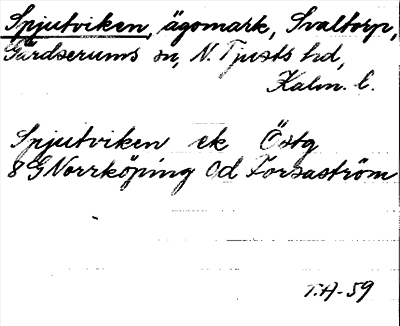 Spjutviken, ägomark, Svaltorp,
Gärdserums sn, N. Tjusts hd,
Kalm. l.
Spjutviken ek Östg
8 G Norrköping Od Forsaström
T.A-59